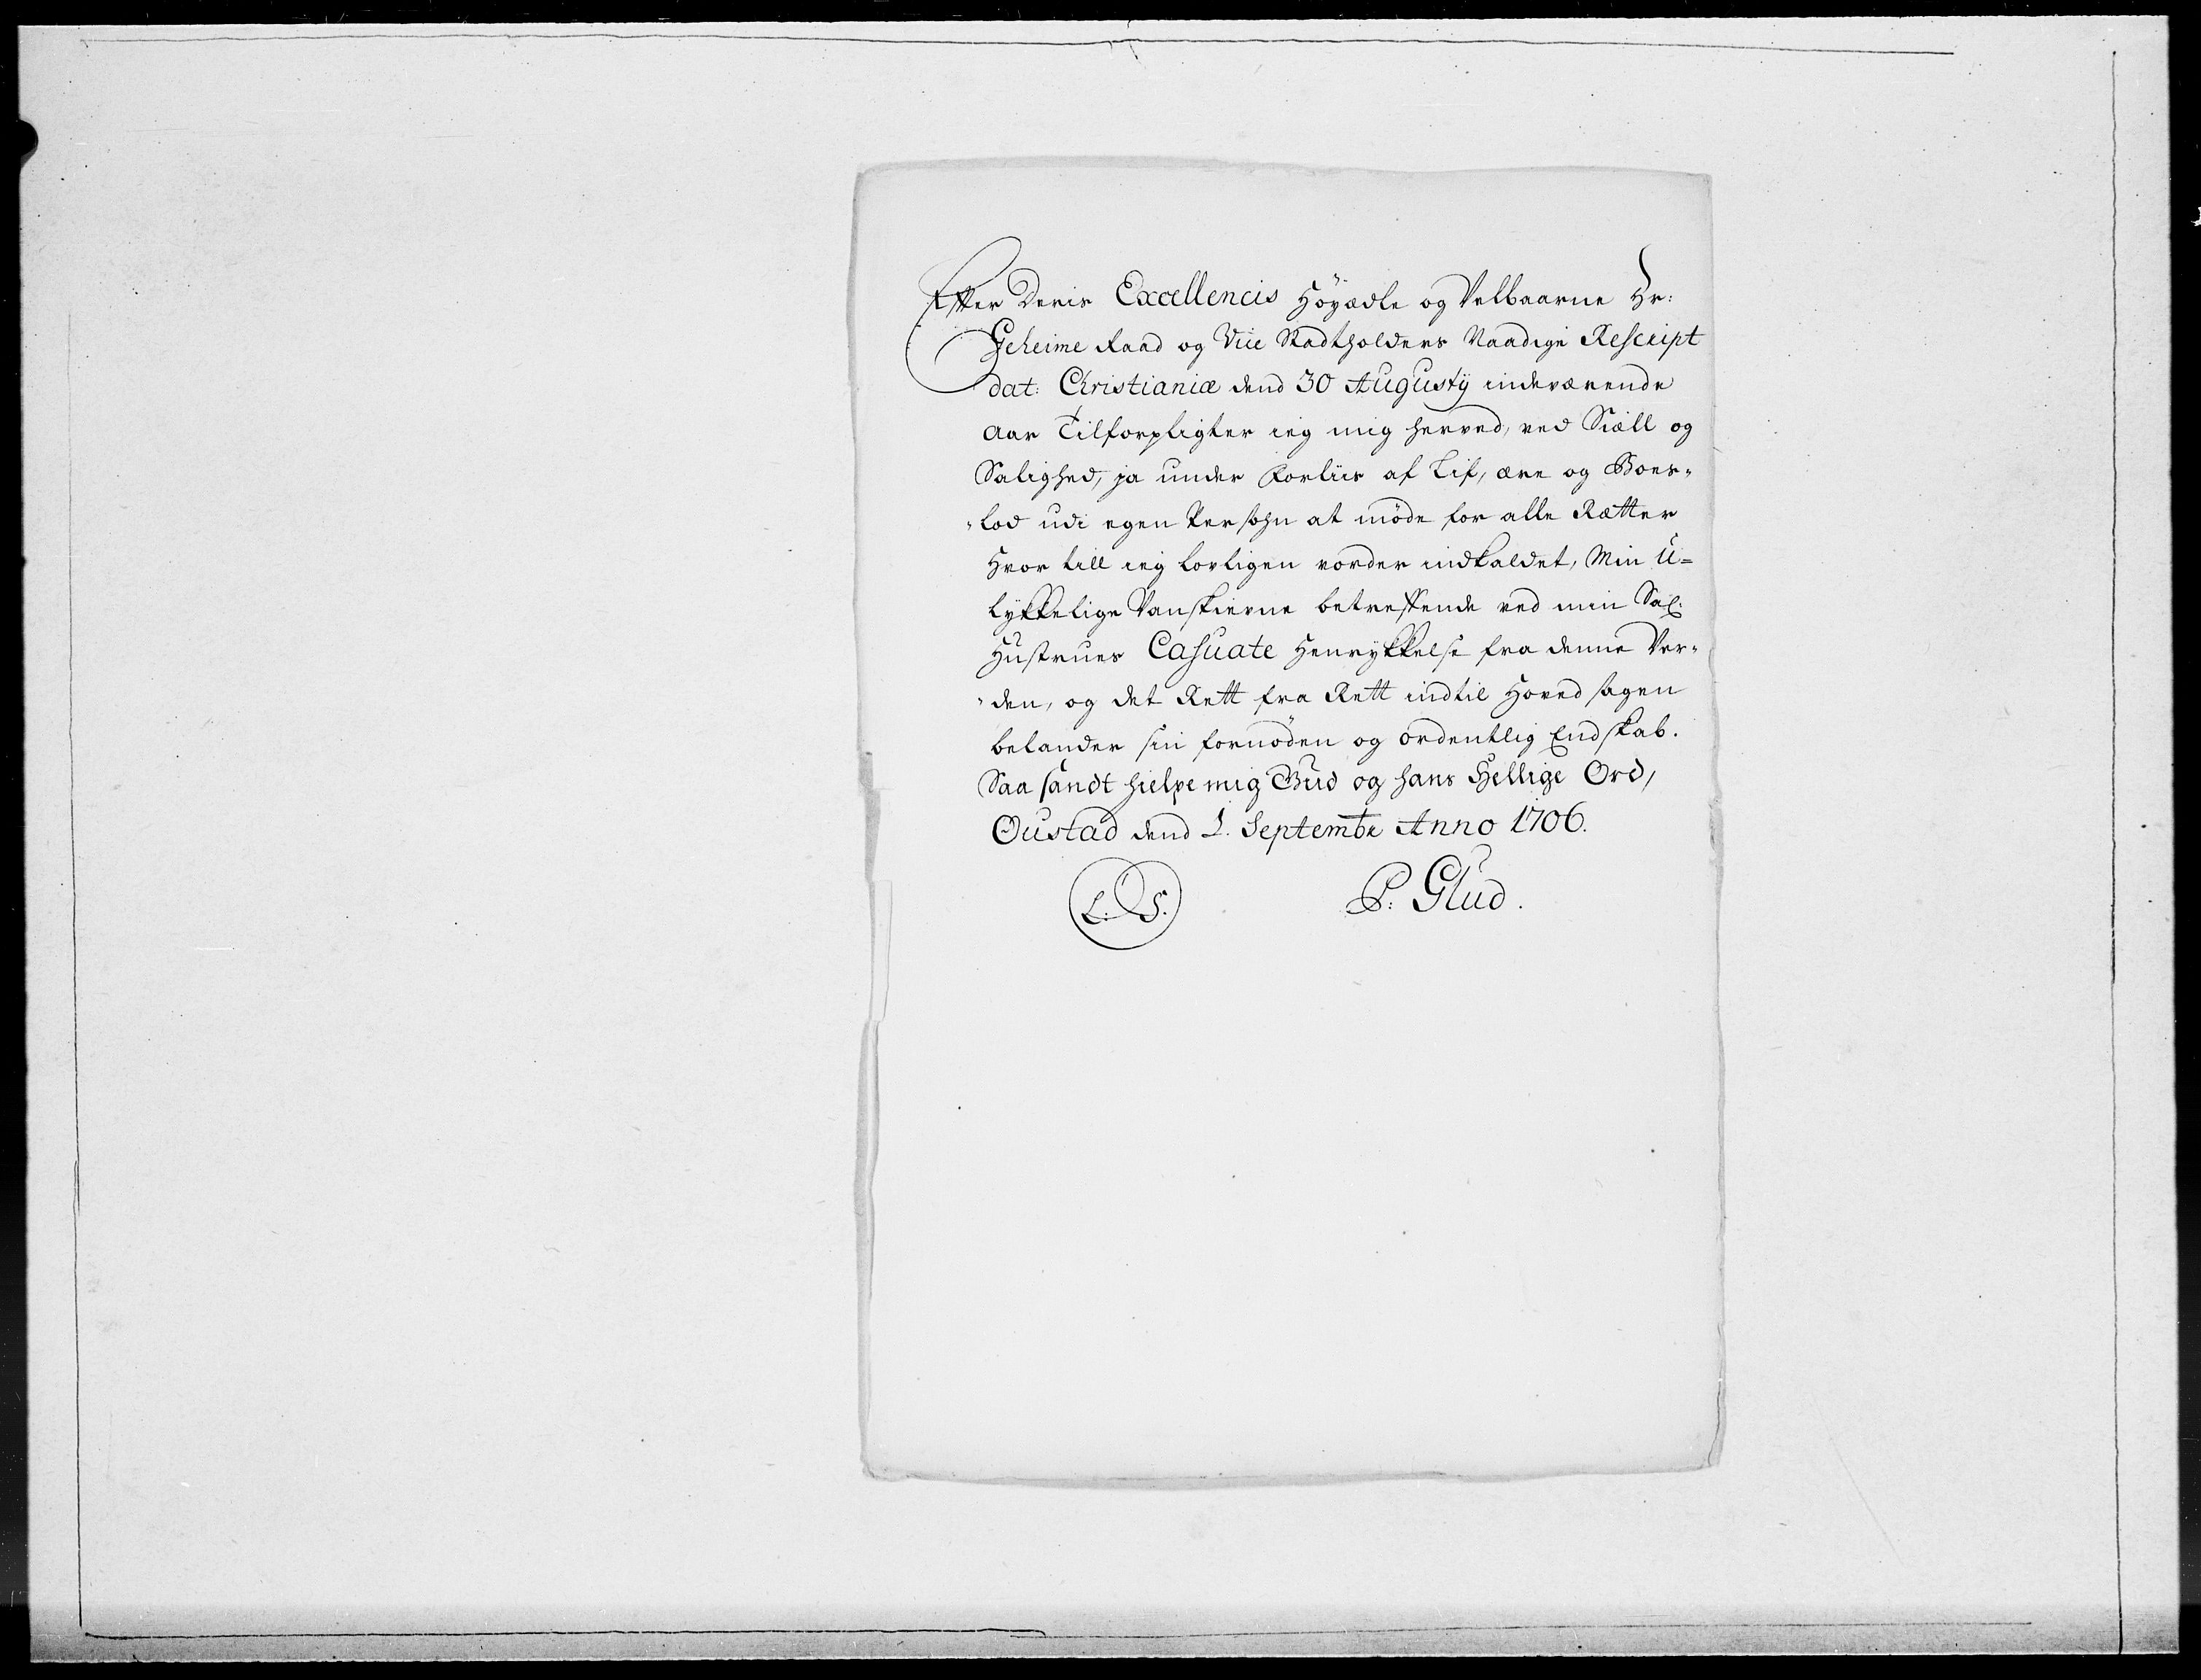 Efter Deris Excellencis Höyædle og Velbaarne Hr:
Geheime Raad og Vice Stadtholders Naadige Rescript
dat: Christianiæ dend 30 Augustÿ indeværende
Aar Tilforpligter ieg mig herved, ved Siæll og
Salighed, ja under Forliis af Lif, ære og Boes-
-lod udi egen Persohn at möde for alle Rætter
Hvor till ieg lovligen vorder indkaldet, Min U=
lykkelige Vanskiebne betreffende ved min Sal:
Hustrues Casuate Henrykkelse fra denne Ver-
-den, og det Rett fra Rett indtil Hoved sagen
belander sin fornöden og ordentlig Endskab.
Saa sandt hielpe mig Gud og hans Hellige Ord,
Oustad dend 2. Septembr Anno 1706.
L: S. P: Glud.